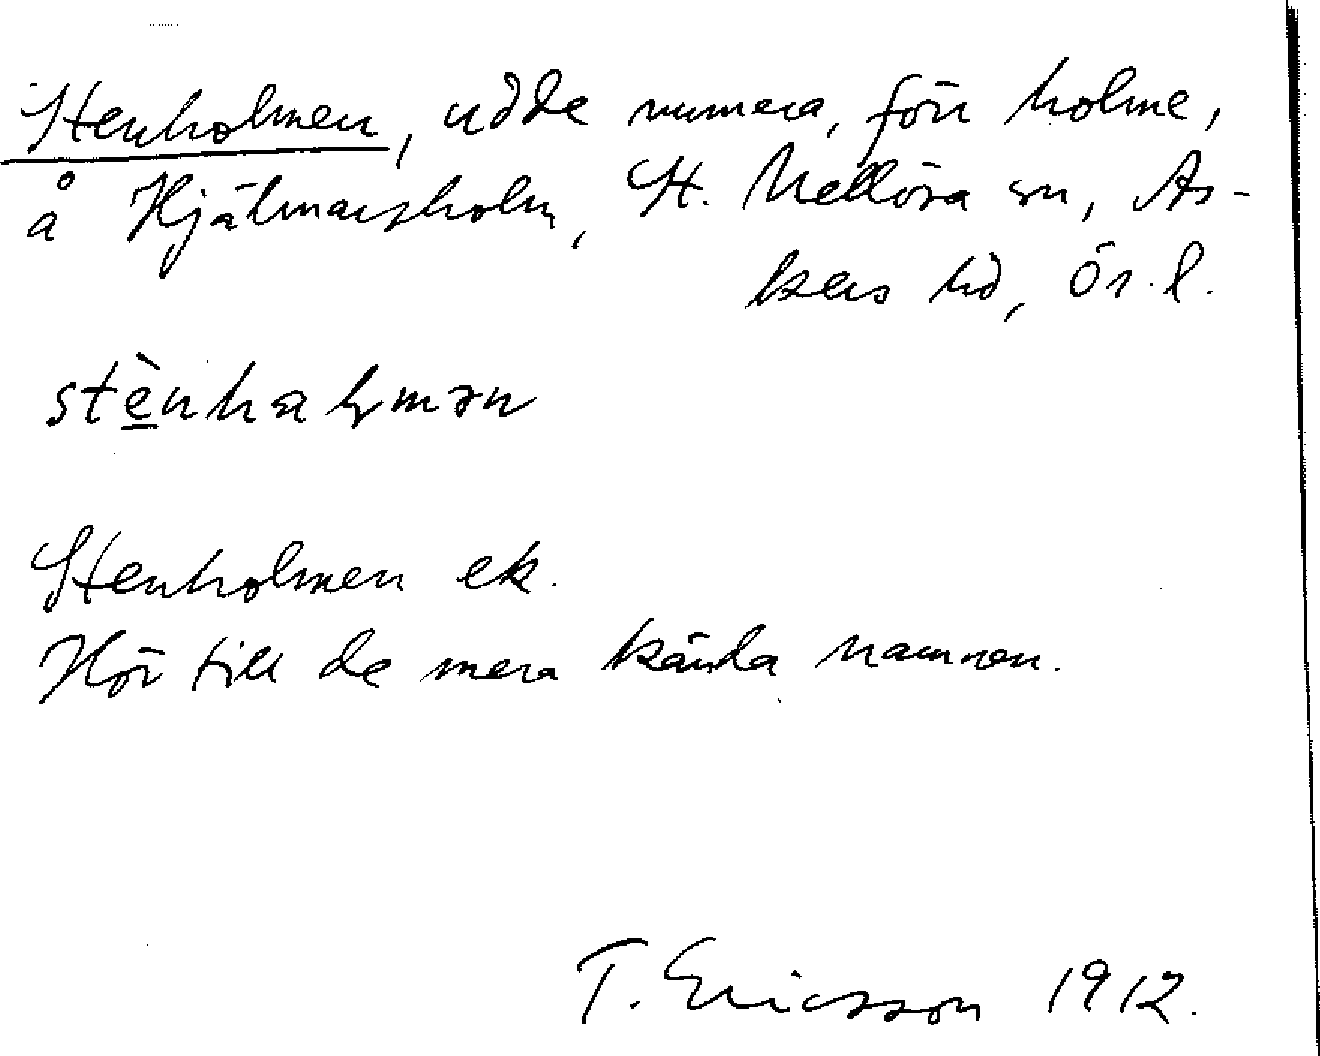 Stenholmen, udde numera, förr holme,
å Hjälmarsholm, St. Mellösa sn, As-
kers hd, Ör. l.
stè̲nhaḷmən
Stenholmen ek.
Hör till de mera kända namnen.
T. Ericsson 1912.